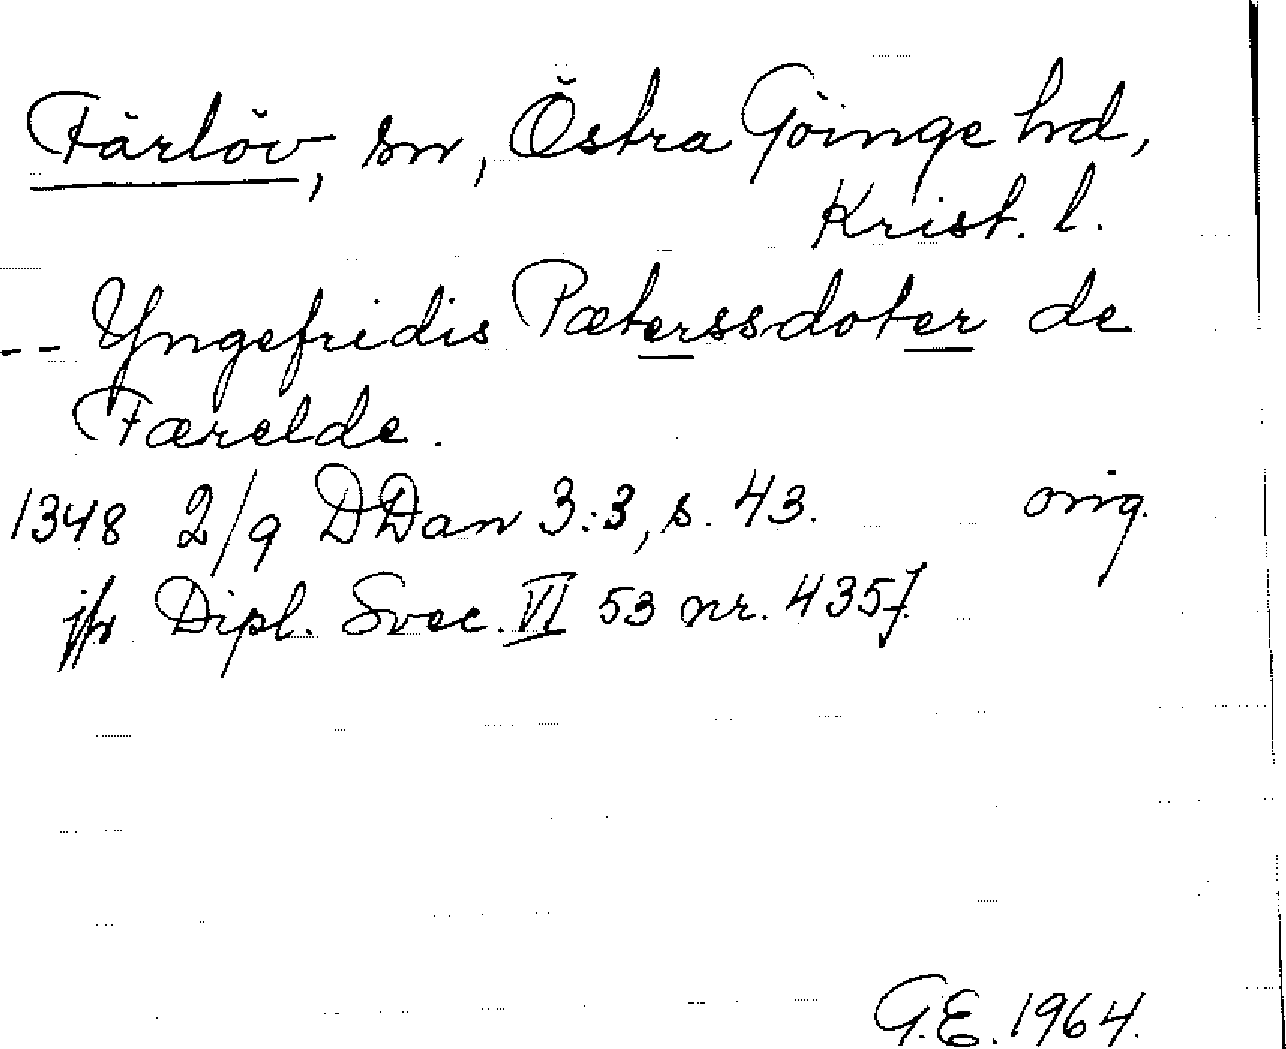 Färlöv, sn, Östra Göinge hd,
Krist. l.
-- Yngefridis Pæterssdoter de
Færelde.
1348 2/9 DDan 3:3, s. 43. orig.
jfr Dipl. Svec. VI 53 nr. 4357.
G.E. 1964.